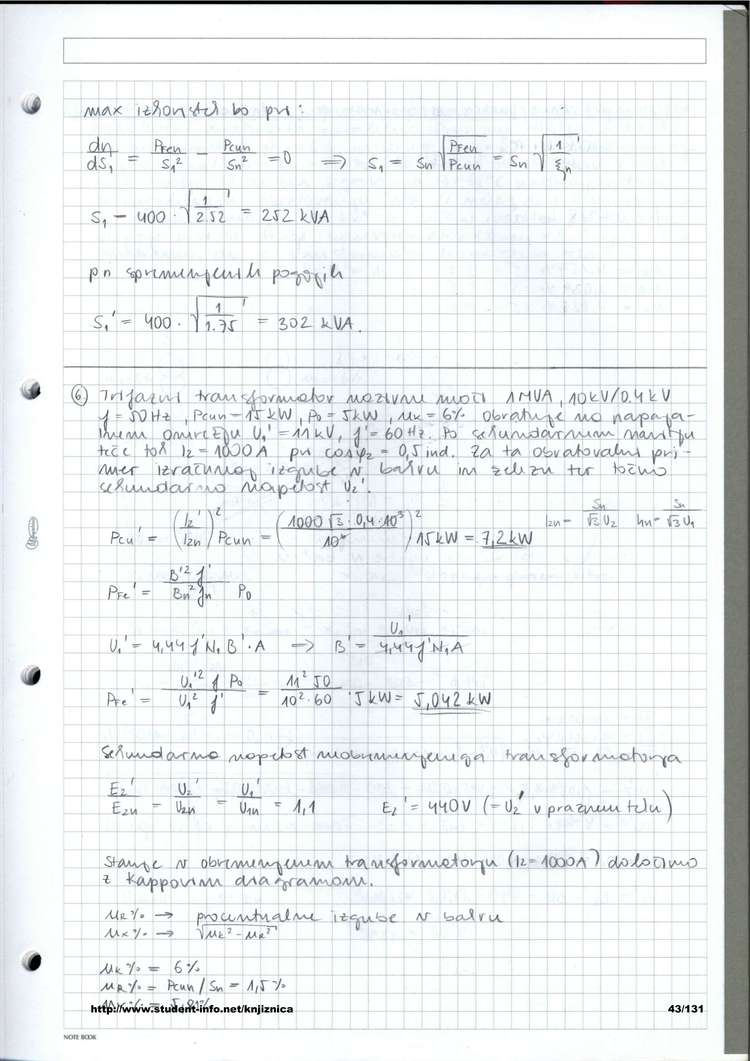 max izkoristek bo pri:
dη/dS₁' = PFen/S₁² - Pcun/Sn² = 0 ⇒ S₁ = Sn √(PFen/Pcun) = Sn √(1/ξn)
S₁ - 400 · √(1/2.52) = 252 kVA
pri spremenjenih pogojih
S₁' = 400 · √(1/1.75) = 302 kVA.
⑥ Trifazni transformator nazivne moči 1MVA, 10kV/0.4kV
f = 50Hz, Pcun = 15kW, P₀ = 5kW, uk = 6% obratuje na napaja-
lnem omrežju U₁' = 11kV, f' = 60Hz. Po sekundarnem navitju
teče tok I₂ = 1000A pri cosφ₂ = 0,5 ind. Za ta obratovalni pri-
mer izračunaj izgube v bakru in železu ter točno
sekundarno napetost U₂'.
Pcu' = (I₂'/I₂n)² Pcun = (1000√3 · 0,4·10³/10⁶)² 15kW = 7,2kW I₂n = Sn/√3 U₂ I₁n = Sn/√3 U₁
PFe' = B'² f'/Bn² fn P₀
U₁' = 4,44 f' N₁ B' · A ⇒ B' = U₁'/4,44 f' N₁ A
PFe' = U₁'² f P₀/U₁² f' = 11² 50/10² · 60 · 5kW = 5,042kW
Sekundarna napetost neobremenjenega transformatorja
E₂'/E₂n = U₂'/U₂n = U₁'/U₁n = 1,1 E₂' = 440V (= U₂' v praznem teku)
Stanje v obremenjenem transformatorju (I₂ = 1000A) določimo
z Kappovim diagramom.
uR% → procentualne izgube v bakru
ux% → √(uk² - uR²)
uk% = 6%
uR% = Pcun/Sn = 1,5%
ux% = 5,81%
http://www.student-info.net/knjiznica 43/131
NOTE BOOK